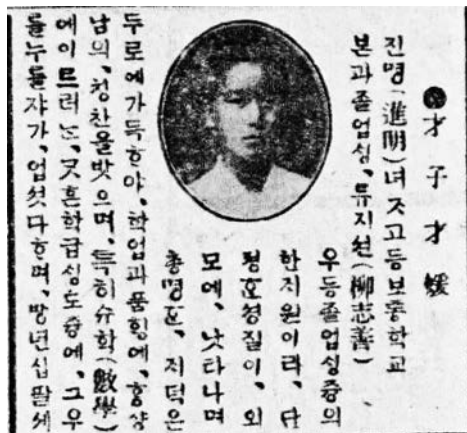 才子才媛
진명(進明)녀ᄌᆞ고등보통학교
본과졸업ᄉᆡᆼ、류지션(柳志善)
우등졸업ᄉᆡᆼ즁의
한지원이라、단
졍ᄒᆞᆫ셩질이、외
모에、낫타나며
총명ᄒᆞᆫ、지덕은
두로에가득ᄒᆞ야、학업과품ᄒᆡᆼ에、ᄒᆞᆼ샹
남의、칭찬을밧으며、특히슈학(數學)
에이르러ᄂᆞᆫ、ᄀᆞᆺ흔학급ᄉᆡᆼ도즁에、그우
를누를쟈가、업셧다ᄒᆞ며、방년십팔셰